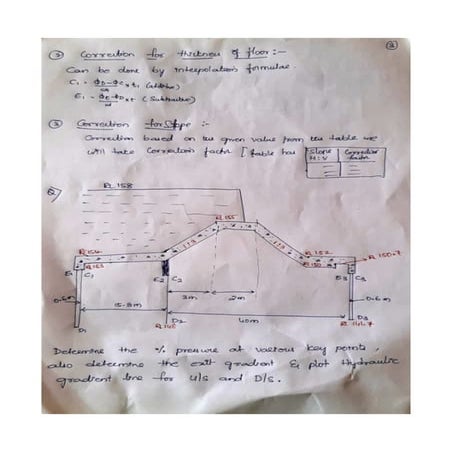 ②
③ Correction for thickness of floor :-
Can be done by Interpolation formulae.
③ Correction for slope :-
Correction based on the given value from the table we
will take Correction factor [table has
Slope
H:V
Correction
factor
Q)
R.L 158
R.L 155
R.L 154
R.L 153
1:3
1:3
R.L 152
R.L 150.7
E1
C1
E2
C2
E3
C3
3m
2m
0.6m
15.8m
0.6m
D1
D2
40m
R.L 148
D3
Determine the % pressure at various key points,
also determine the exit gradient & plot Hydraulic
gradient line for U/s and D/s.